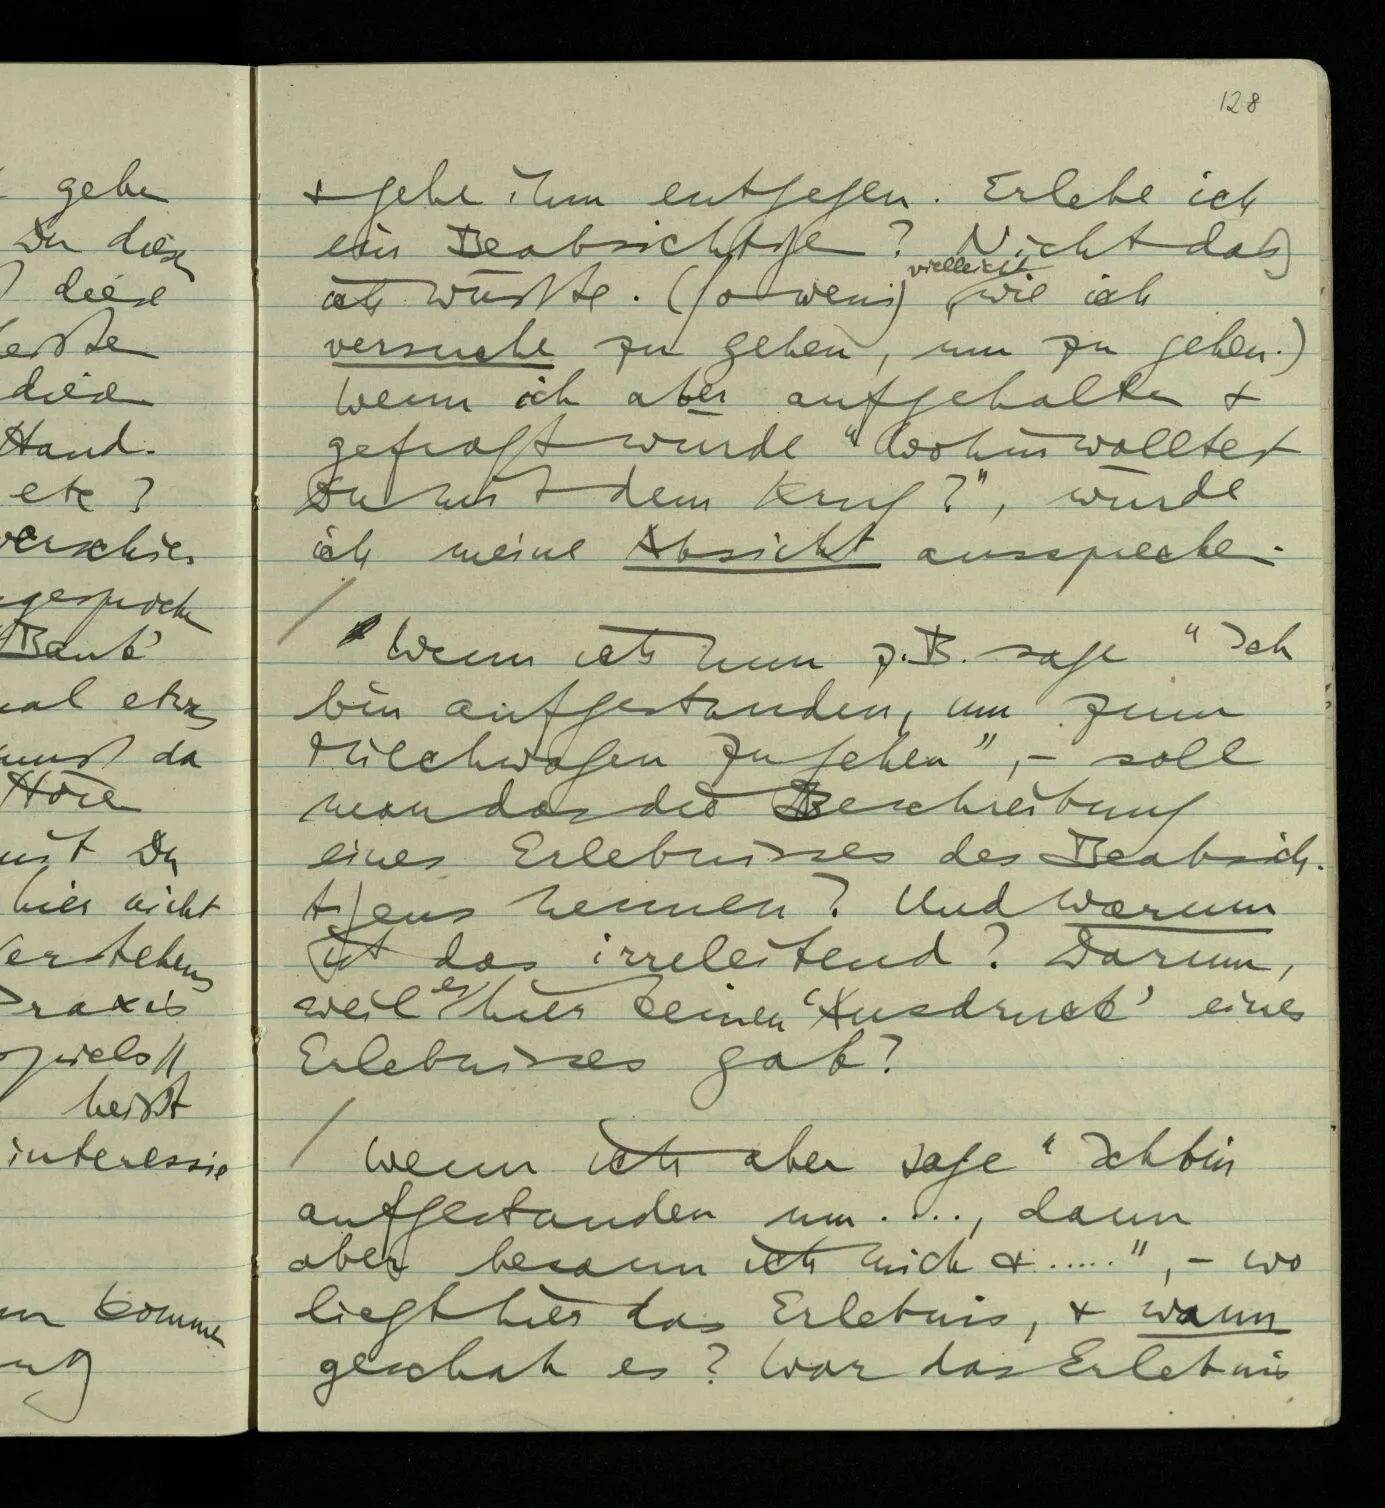 128
gehe
Du diese
diese
diese
Hand.
etc?
'Bank'
da
mit Du
hier nicht
Praxis
heißt
+ gehe ihm entgegen. Erlebe ich
ein Beabsichtige? Nicht daß
ich wüßte. (So wenig vielleicht, wie ich
versuche zu gehen, um zu gehen.)
Wenn ich aber aufgehalten +
gefragt würde "Wohin wolltest
Du mit dem Krug?", würde
ich meine Absicht aussprechen.
/ Wenn ich nun z.B. sage "Ich
bin aufgestanden, um zum
Milchwagen zu gehen", – soll
man das die Beschreibung
eines Erlebnisses des Beabsich-
tigens nennen? Und warum
ist das irreleitend? Darum,
weil es hier keinen 'Ausdruck' eines
Erlebnisses gab?
/ Wenn ich aber sage "Ich bin
aufgestanden um...., dann
aber besann ich mich +......", – wo
liegt hier das Erlebnis, + wann
geschah es? War das Erlebnis